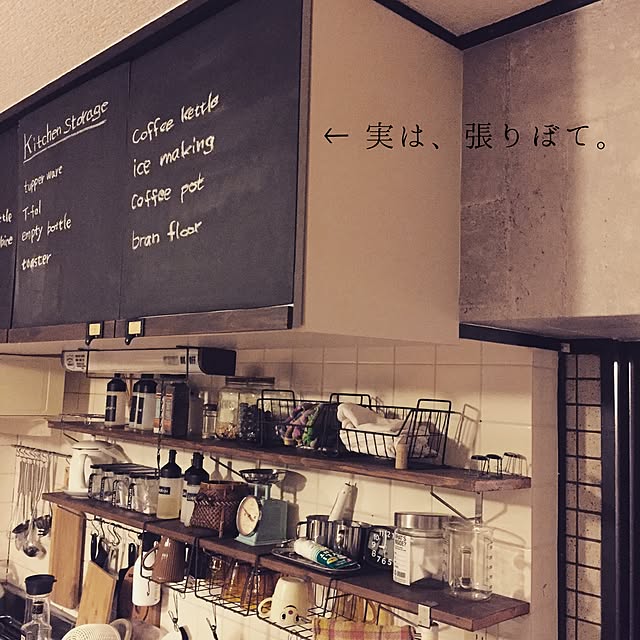 ← 実は、張りぼて。
Kitchen Storage
tupper ware
T-fal
empty bottle
toaster
Coffee kettle
ice making
coffee pot
bran floor